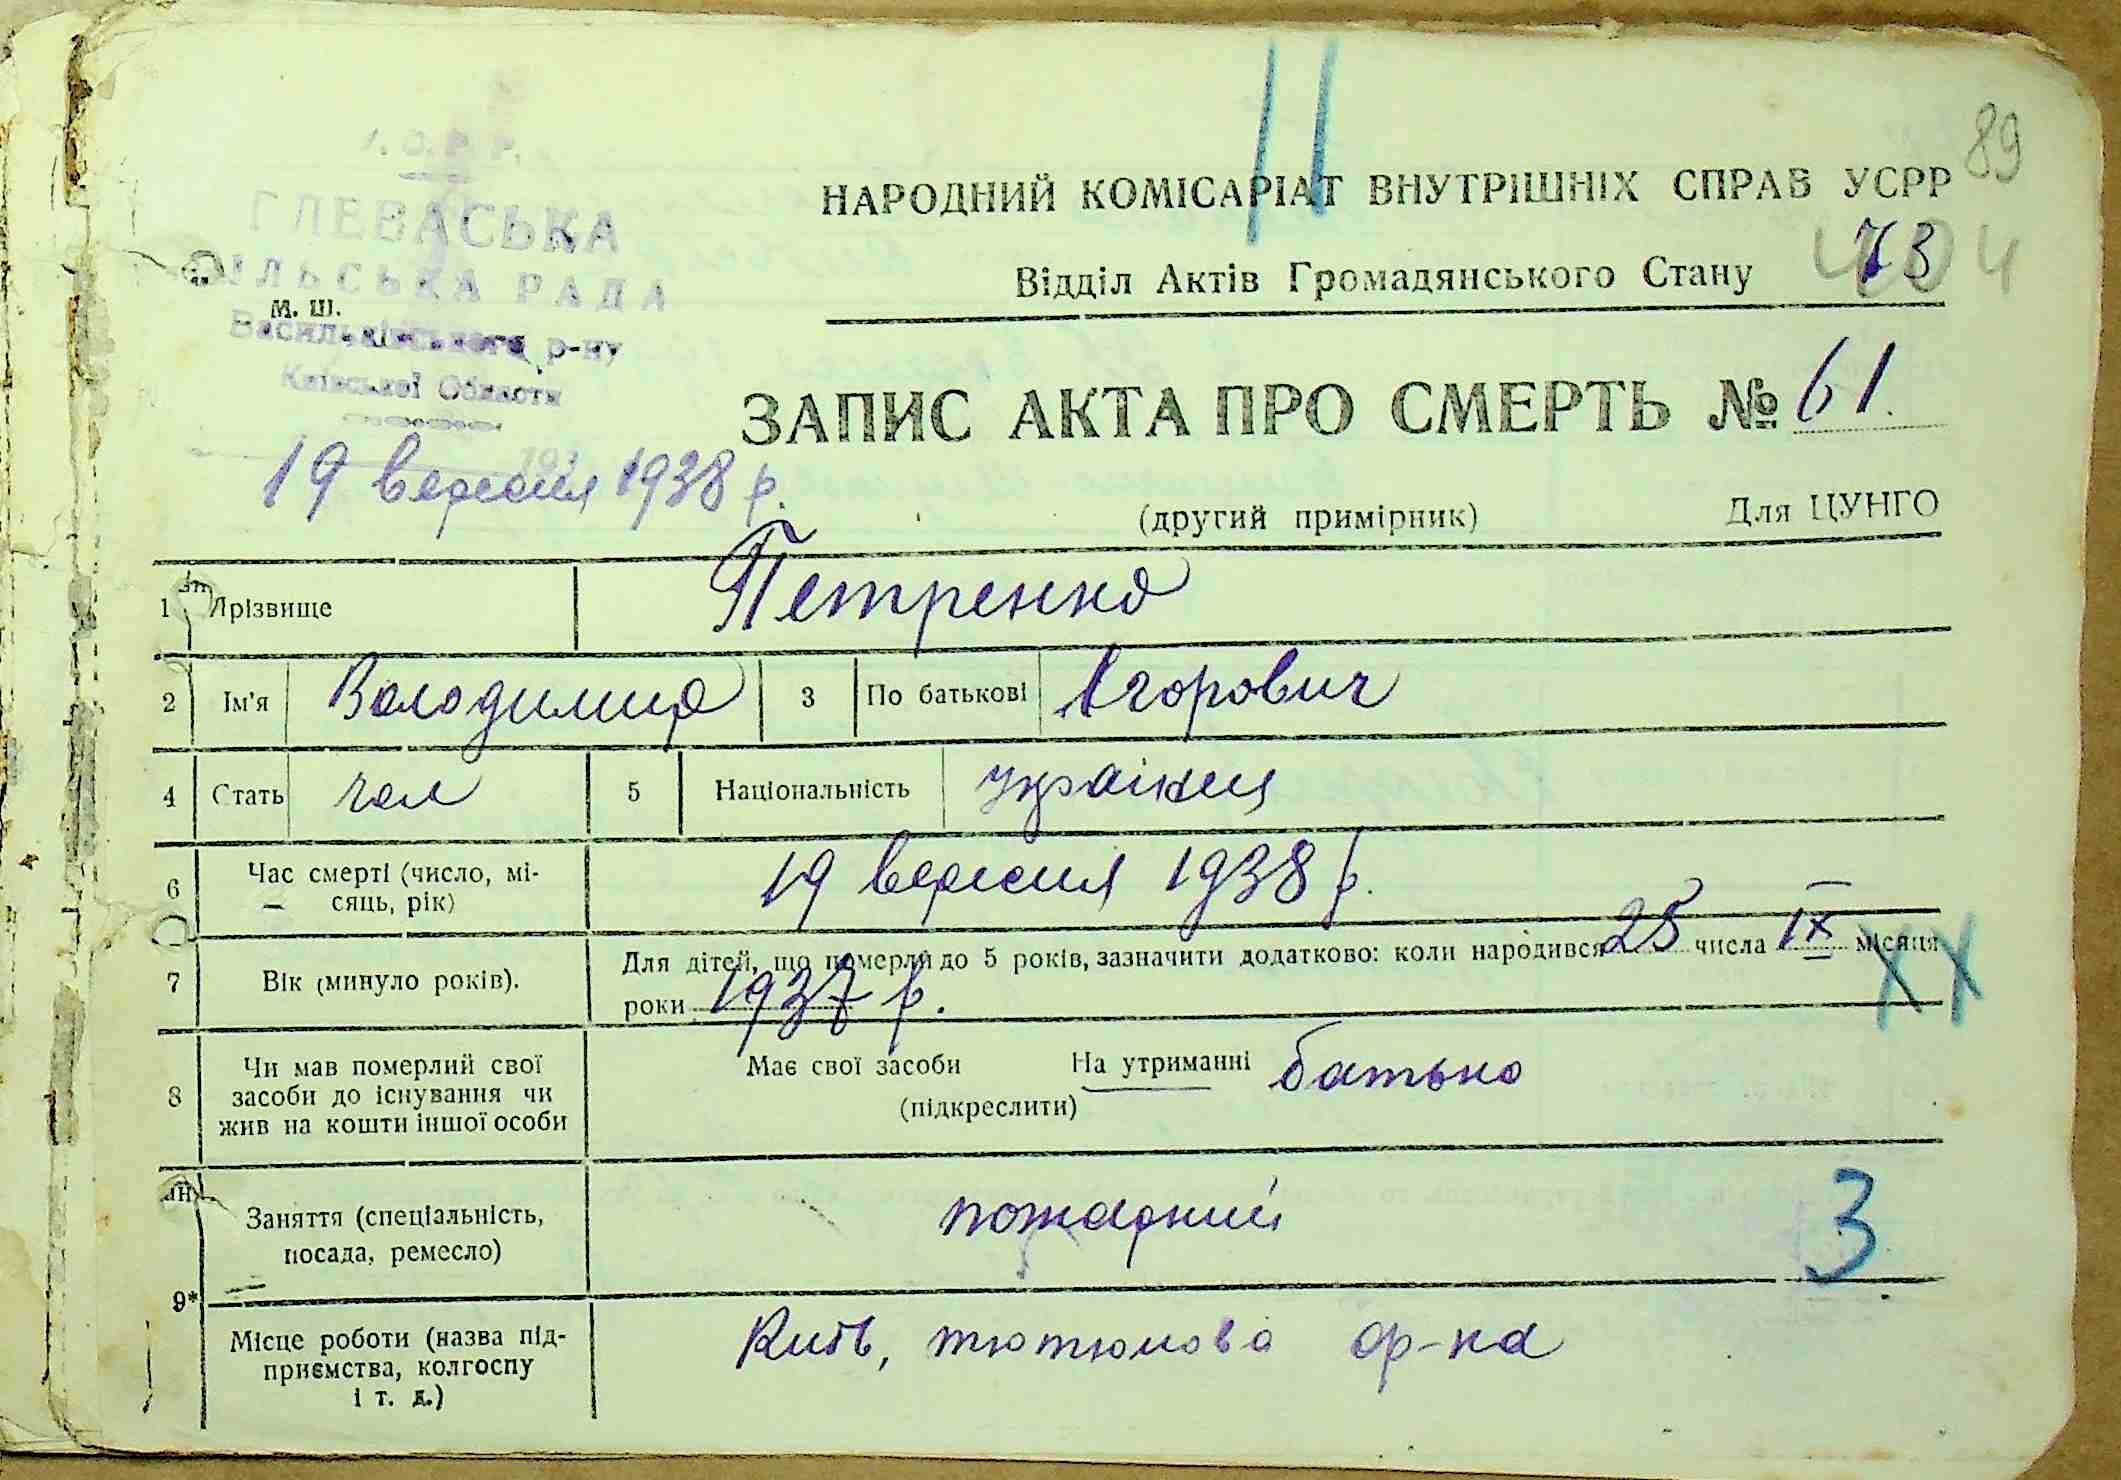 89
У. С. Р. Р.
ГЛЕВАСЬКА
СІЛЬСЬКА РАДА
М. Ш.
Васильківського р-ну
Київської Області
НАРОДНИЙ КОМІСАРІАТ ВНУТРІШНІХ СПРАВ УСРР
Відділ Актів Громадянського Стану 73
ЗАПИС АКТА ПРО СМЕРТЬ № 61
19 вересня 1938 р.
(другий примірник) Для ЦУНГО
1 Прізвище Петренко
2 Ім'я Володимир 3 По батькові Ігорович
4 Стать чол 5 Національність українец
6 Час смерті (число, мі-
сяць, рік) 19 вересня 1938 р.
7 Вік (минуло років). Для дітей, що померли до 5 років, зазначити додатково: коли народився 25 числа IX місяця
роки 1937 р.
XX
8 Чи мав померлий свої
засоби до існування чи
жив на кошти іншої особи
Має свої засоби На утриманні батько
(підкреслити)
9* Заняття (спеціальність,
посада, ремесло) пожарний 3
Місце роботи (назва під-
приємства, колгоспу
і т. д.)
Київ, тютюнова ф-ка